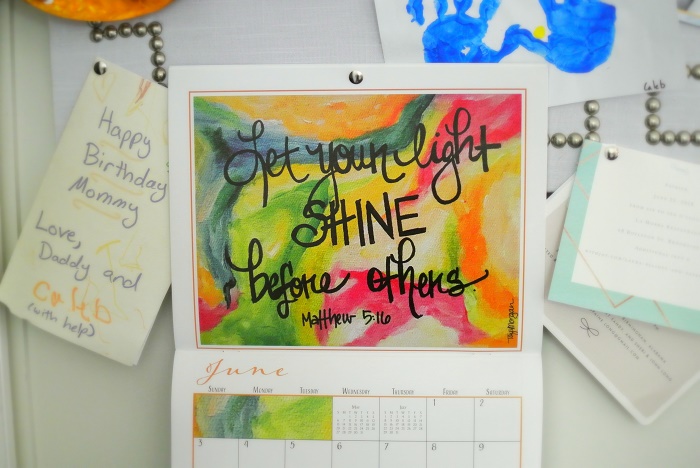 Happy
Birthday
Mommy
Love,
Daddy and
Caleb
(with help)
Let your light
SHINE
before others.
Matthew 5:16
June
SUNDAY MONDAY TUESDAY WEDNESDAY THURSDAY FRIDAY SATURDAY
1 2
3 4 5 6 7 8 9